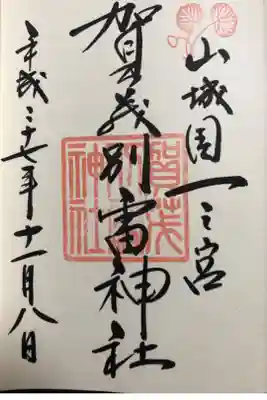 山城國一之宮
賀茂別雷神社
平成二十七年十一月八日
賀茂別雷神社